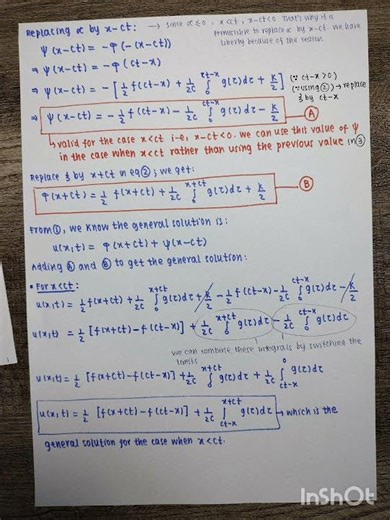 Replacing α by x-ct: → since α≤0, x<ct, x-ct<0 That's why it's
permissible to replace α by x-ct. we have
liberty because of the reason.
ψ(x-ct) = -φ(-(x-ct))
⇒ ψ(x-ct) = -φ(ct-x)
⇒ ψ(x-ct) = -[½ f(ct-x) + 1/2c ∫₀^{ct-x} g(τ)dτ + K/2] (∵ ct-x>0) (∵ using ② → replace ξ by ct-x
⇒ ψ(x-ct) = -½ f(ct-x) - 1/2c ∫₀^{ct-x} g(τ)dτ - K/2 — Ⓐ
→ valid for the case x<ct i.e, x-ct<0. we can use this value of ψ
in the case when x<ct rather than using the previous value in ③
Replace ξ by x+ct in eq ②; we get:
φ(x+ct) = ½ f(x+ct) + 1/2c ∫₀^{x+ct} g(τ)dτ + K/2 — Ⓑ
From ①, we know the general solution is:
u(x,t) = φ(x+ct) + ψ(x-ct)
Adding Ⓐ and Ⓑ to get the general solution:
• For x<ct:
u(x,t) = ½ f(x+ct) + 1/2c ∫₀^{x+ct} g(τ)dτ + K/2 - ½ f(ct-x) - 1/2c ∫₀^{ct-x} g(τ)dτ - K/2
u(x,t) = ½ [f(x+ct) - f(ct-x)] + 1/2c ∫₀^{x+ct} g(τ)dτ - 1/2c ∫₀^{ct-x} g(τ)dτ
we can combine these integrals by switched the
limits
u(x,t) = ½ [f(x+ct) - f(ct-x)] + 1/2c ∫₀^{x+ct} g(τ)dτ + 1/2c ∫_{ct-x}^{0} g(τ)dτ
u(x,t) = ½ [f(x+ct) - f(ct-x)] + 1/2c ∫_{ct-x}^{x+ct} g(τ)dτ → which is the
general solution for the case when x<ct.
InShOt